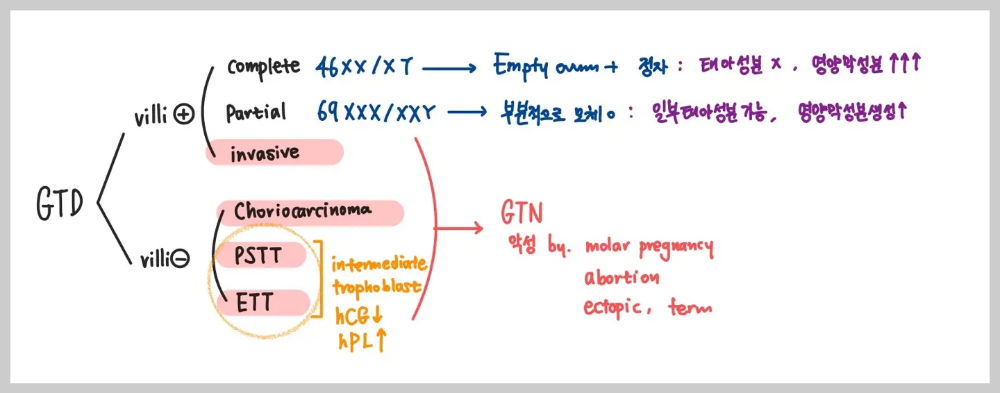 GTD
villi ⊕
complete 46XX/XY → Empty ovum + 정자 : 태아성분 x, 영양막성분↑↑↑
Partial 69XXX/XXY → 부분적으로 모체 o : 일부태아성분가능, 영양막성분생성↑
invasive
villi⊖
Choriocarcinoma
PSTT
ETT
intermediate
trophoblast
hCG↓
hPL↑
→ GTN
악성 by. molar pregnancy
abortion
ectopic, term